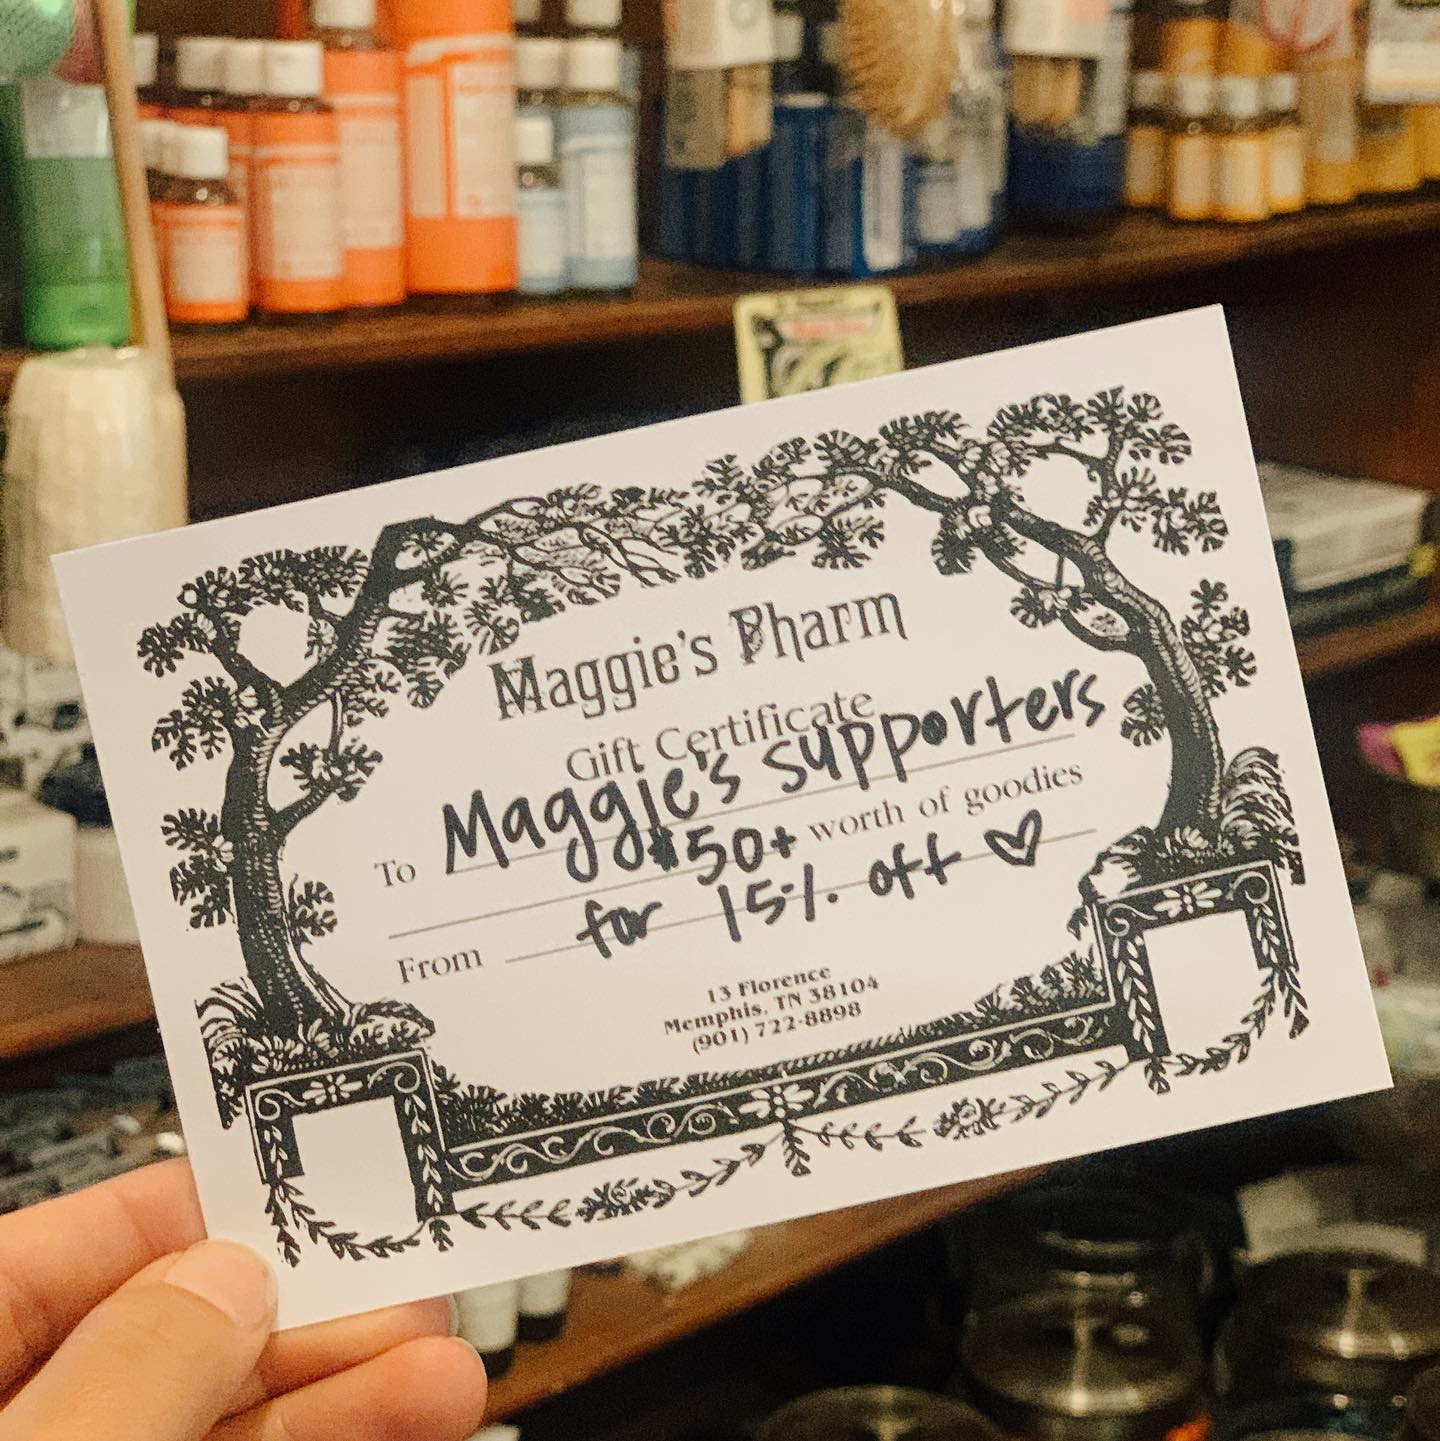 Maggie's Pharm
Gift Certificate
To Maggie's supporters
$50+ worth of goodies
From for 15% off ♡
13 Florence
Memphis, TN 38104
(901) 722-8898